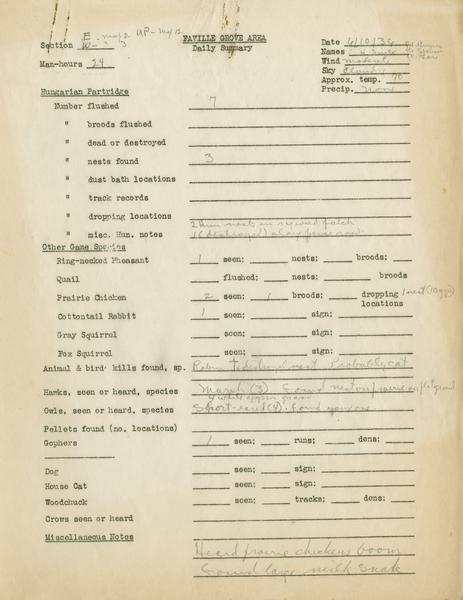 FAVILLE GROVE AREA
Daily Summary
Section E
W
Man-hours 24
Date 6/10/36
Names
Wind moderate
Sky Cloudy
Approx. temp. 70
Precip. None
Hungarian Partridge
Number flushed 7
" broods flushed
" dead or destroyed
" nests found 3
" dust bath locations
" track records
" dropping locations
" misc. Hun. notes 2 Hun nests in
1 (destroyed) along
Other Game Species
Ring-necked Pheasant 1 seen; nests; broods;
Quail flushed; nests; broods
Prairie Chicken 2 seen; 1 broods; dropping locations 1 nest (10 eggs)
Cottontail Rabbit 1 seen; sign;
Gray Squirrel seen; sign;
Fox Squirrel seen; sign;
Animal & bird kills found, sp. Robin nest Probably cat
Hawks, seen or heard, species Marsh (3) Found nest on prairie
4 white eggs in grass
Owls, seen or heard, species Short-eared (4). Found young one
Pellets found (no. locations)
Gophers 1 seen; runs; dens;
Dog seen; sign;
House Cat seen; sign;
Woodchuck seen; tracks; dens;
Crows seen or heard
Miscellaneous Notes
Heard prairie chickens boom
Found large milk snake.